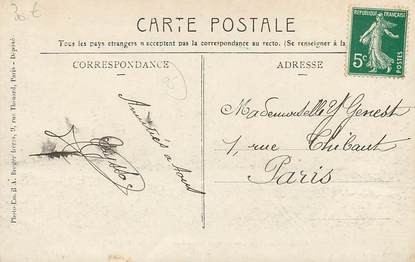 30 €
CARTE POSTALE
Tous les pays étrangers n'acceptent pas la correspondance au recto. (Se renseigner à la
CORRESPONDANCE
ADRESSE
RÉPUBLIQUE FRANÇAISE
5c
POSTES
Amitiés à tous
Mademoiselle Y Genest
1, rue Thibaut
Paris
Photo-Édit. H.A. Breger frères, 9, rue Thénard, Paris - Déposé